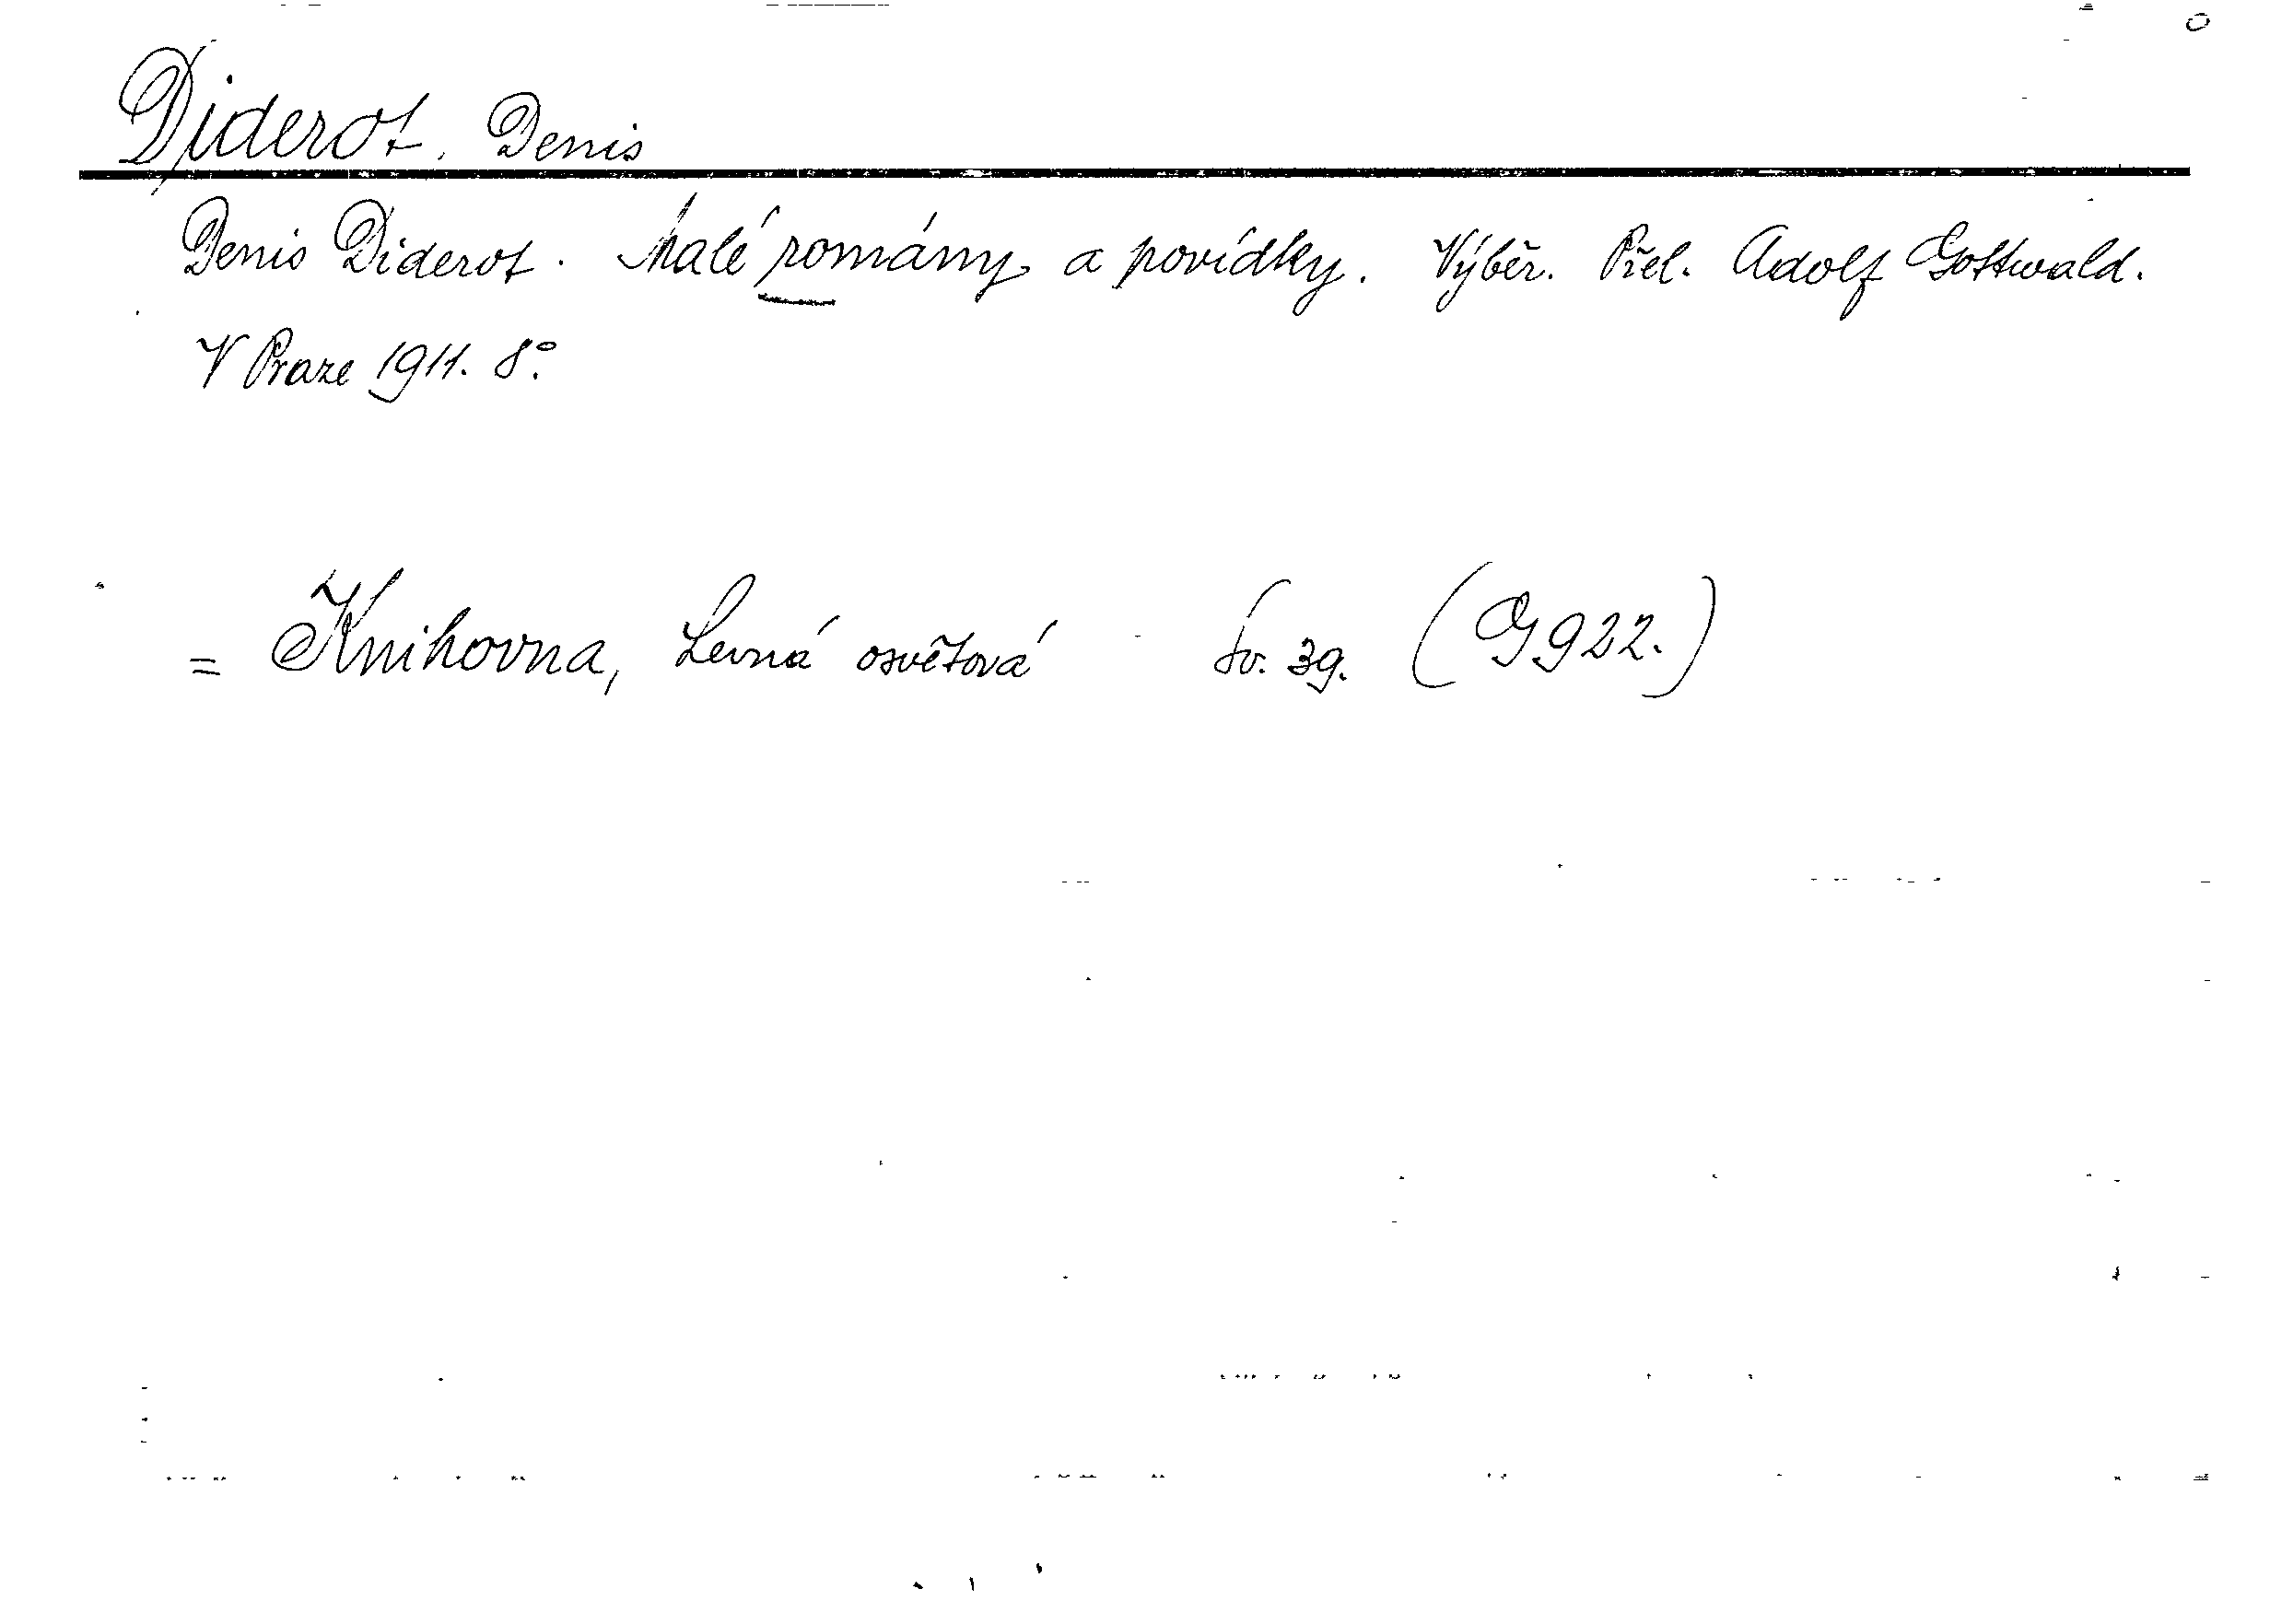 Diderot, Denis
Denis Diderot. Malé romány a povídky. Výběr. Přel. Adolf Gottwald.
V Praze 1911. 8°.
= Knihovna, Levná osvětová Sv. 39. (G 922.)